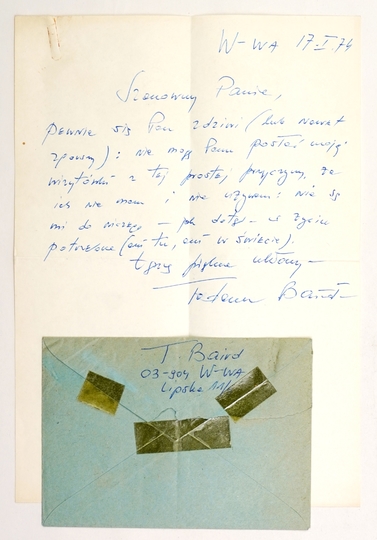 W-WA 17-I.74
Szanowny Panie,
pewnie się Pan zdziwi (lub nawet
): nie mogę Panu posłać mojej
wizytówki z tej prostej przyczyny, że
ich nie mam i nie używam: nie są
mi do niczego – jak dotąd – w życiu
potrzebne (ani tu, ani w świecie).
Łączę piękne ukłony –
Tadeusz Baird
T Baird
03-904 W-WA
Lipska 11/